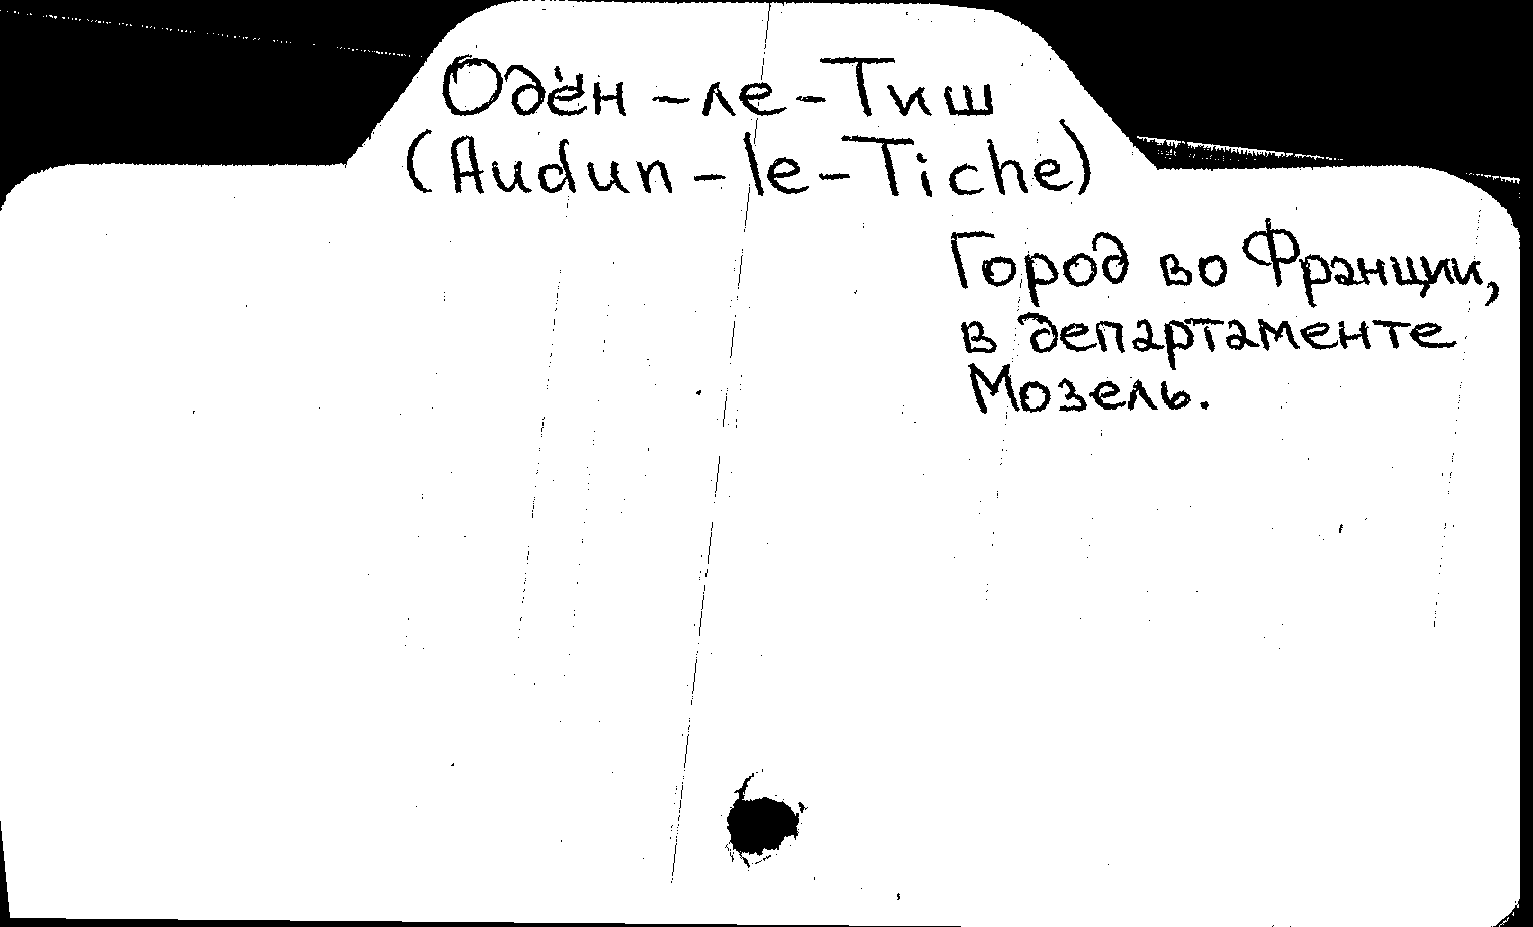 Одён-ле-Тиш
(Audun-le-Tiche)
Город во Франции,
в департаменте
Мозель.